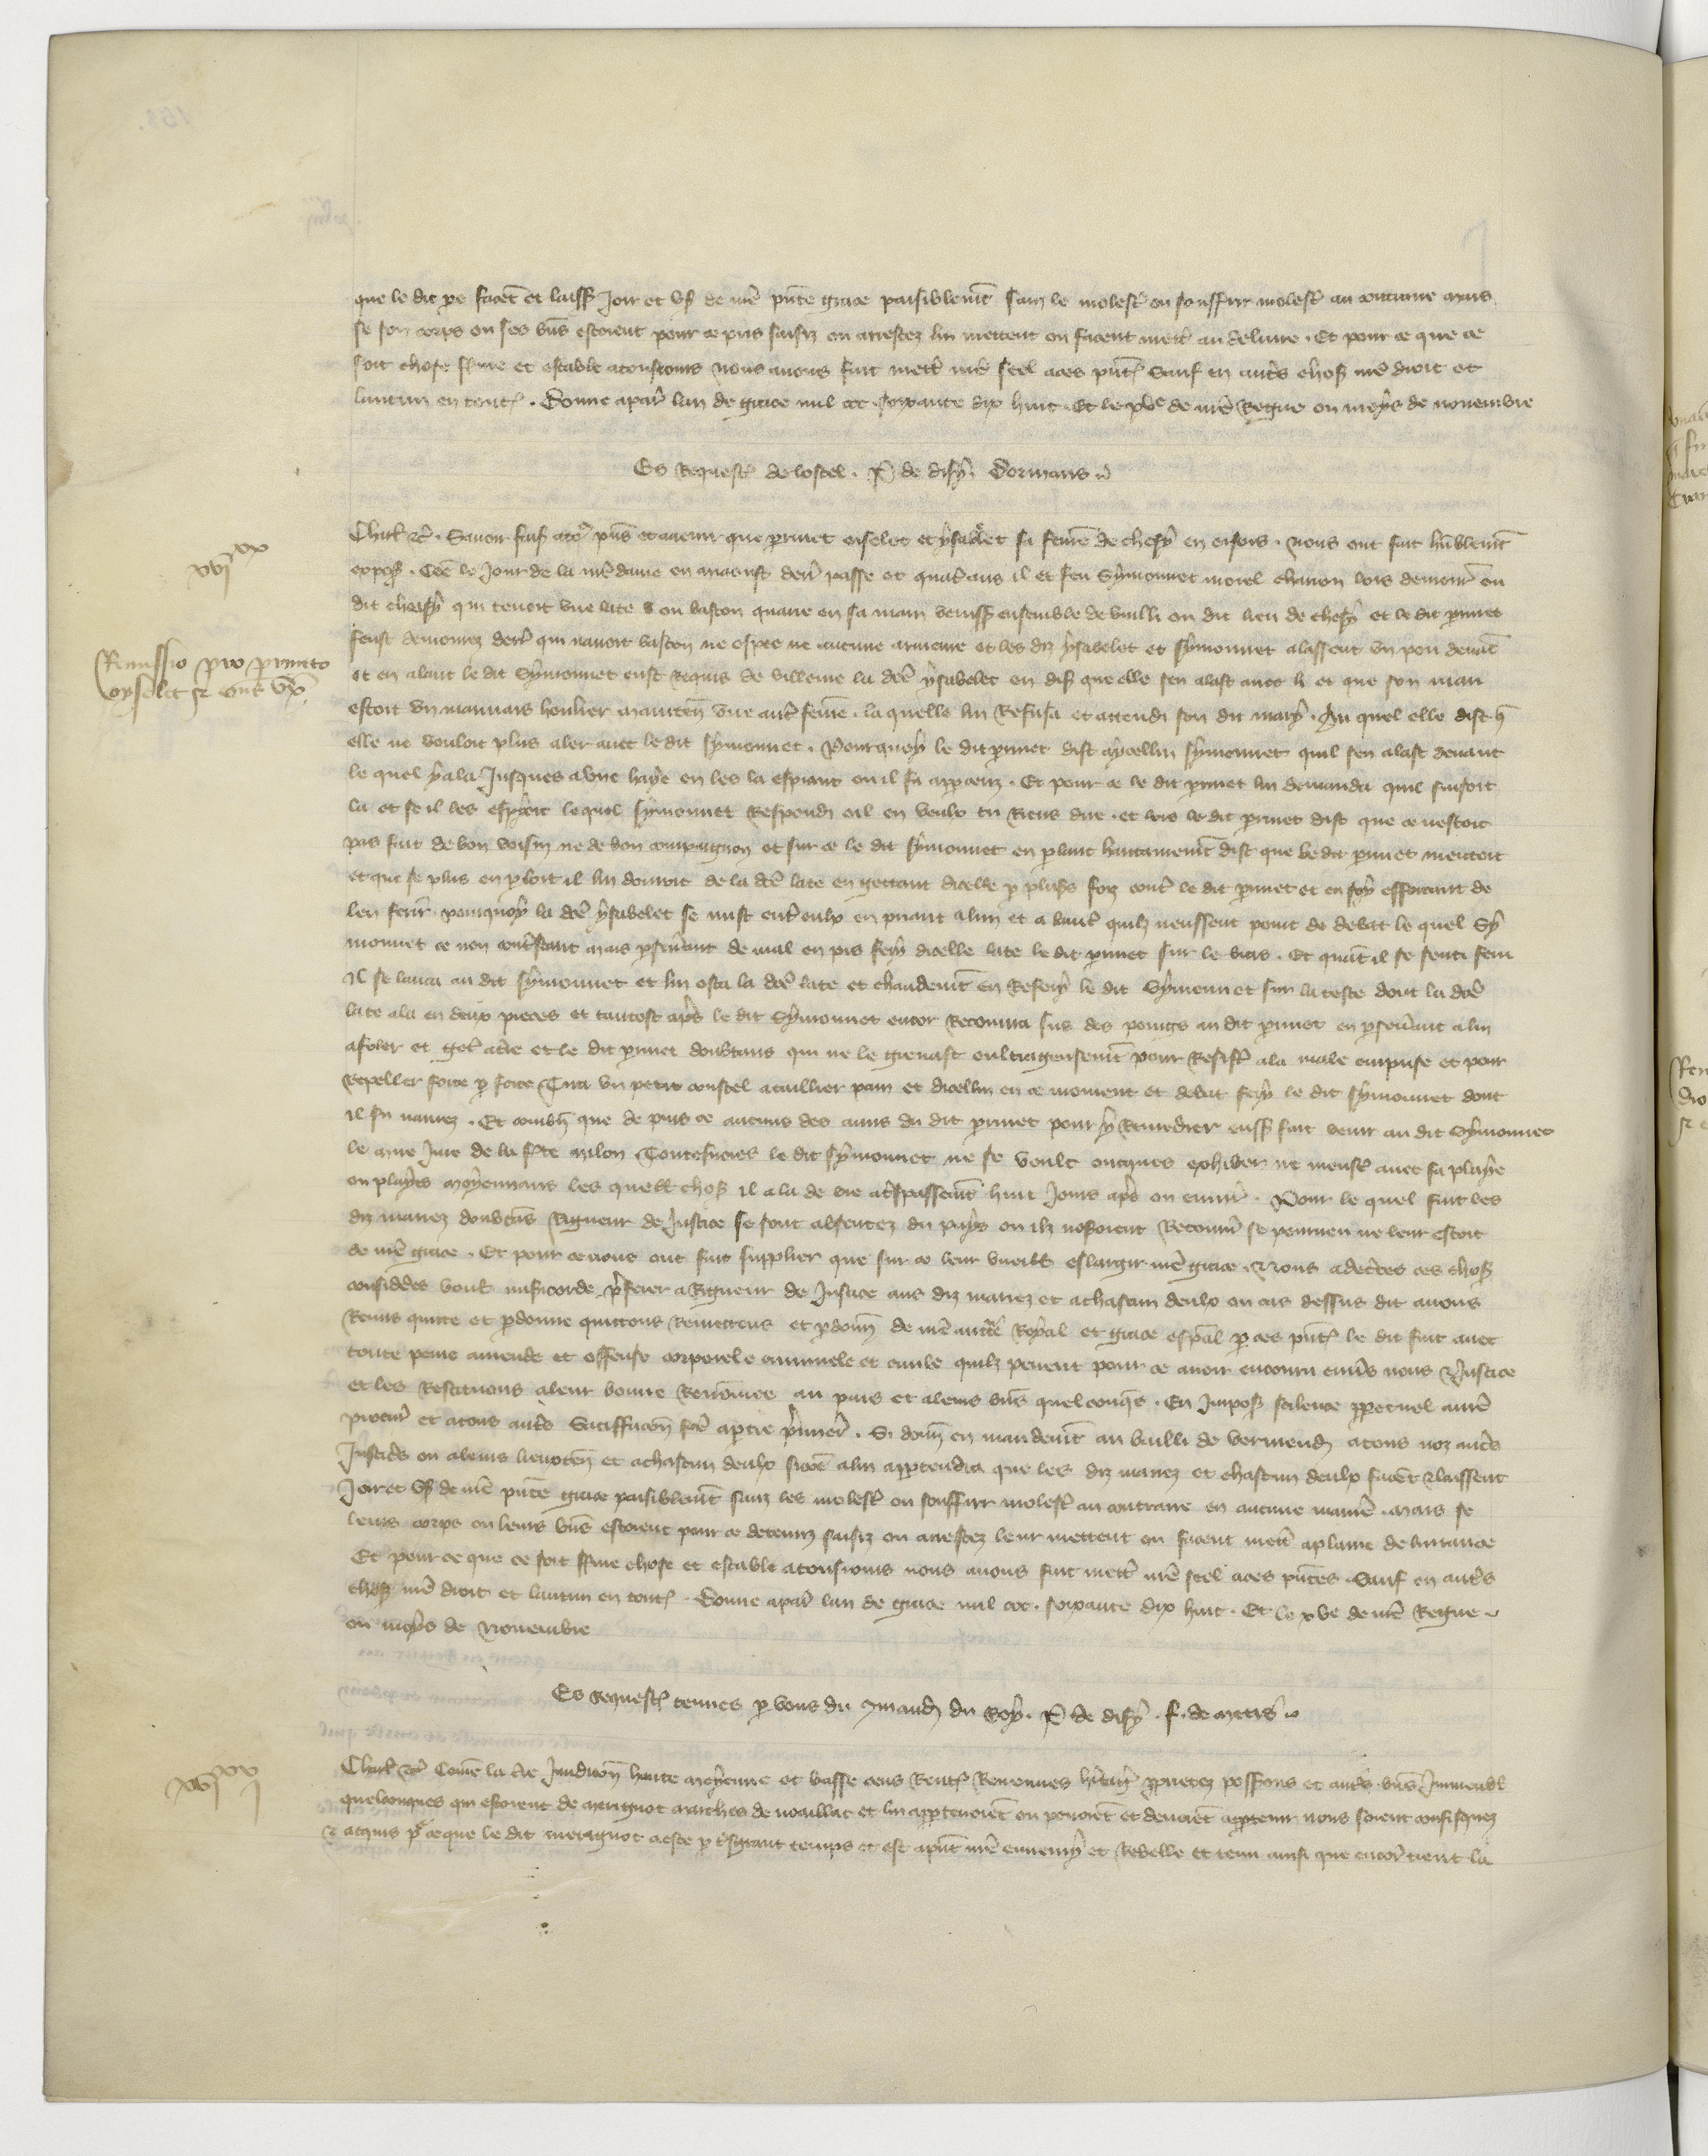 que le dit pe facēt et laissē Joir et vs de nrē pñte grace paisiblemēt sanz le molestr ou souffrir molestr au contraire mais
se son corps ou ses biēs estoient pour ce pris saisiz ou arrestez lui mettent ou facent mettr au delivre . Et pour ce que ce
soit chose ferme et estable atousiours nous avons fait mettr nrē seel a ces pñtes Sauf en autrs choses nrē droit et
lautrui en toutes . Donne a paris lan de grace mil ccc soixante dix huit . Et le xve de nrē Regne ou moys de novembre
Es Requestes de lostel . P de disy . Dormans
xx
vvi
Charl etc . Savoir fais a to9 pñs et avenir que perrinet oiselet et ysabelet sa feme de chesy en orsois . nous ont fait hublemēt
expose . Cōe le Jour de la nrē dame en aoust derr passe et quatre ans il et feu Symonnet morel charron lors demour ou
dit chesy qui tenoit vne late ou baston quarre en sa main venissent ensemble de vailli ou dit lieu de chesy et le dit perrinet
feust demourez derr qui navoit baston ne espee ne aucune armeure et les diz ysabelet et symonnet alassent vn pou devāt
Remissio pro perrineto
oyselet et eius vxē
et en alant le dit Symonnet eust Requis de villenie la dcē ysabelet en disant que elle sen alast avec li et que son mari
estoit vn mauvais houlier maintenāt vne autre feme . la quelle lui Refusa et attendi son dit mary . Au quel elle dist q̄
elle ne vouloit plus aler avec le dit symonnet . Pourquoy le dit perrinet dist aycellui symonnet quil sen alast devant
le quel y ala Jusques a vne haye en les la espiant ou il fu apperceuz . Et pour ce le dit perrinet lui demanda quil faisoit
la et se il les espioit lequel symonnet Respondi oil en veulx tu Riens dire . et lors le dit perrinet dist que ce nestoit
pas fait de bon voisin ne de bon compaignon et sur ce le dit symonnet en parlant haultainemēt dist que le dit perrinet mentoit
et que se plus en parloit il lui donroit de la dcē late en gettant dicelle p plus9s foiz contre le dit perrinet et en soy efforcant de
len ferir . pourquoy la dcē ysabelet se mist entre eulx en priant a lun et a lautre quilz neussent point de debat le quel Sy
monnet ce non contrestant mais perseverant de mal en pis fery dicelle late le dit perrinet sur le bras . Et quāt il se senti feru
Il se lanca au dit symonnet et lui osta la dcē late et chaudemēt en Refery le dit Symonnet sur la teste dont la dcē
late ala en deux pieces et tantost aprs le dit Symonnet encor Recourra sus des poings au dit perrinet en perseverant a lui
afoler et getr atrē et le dit perrinet doubtans qui ne le grevast oultrageusemēt pour Resistr ala male emprise et pour
Repeller force p force Tira vn petit coustel a taillier pain et dicellui en ce moment et debat fery le dit symonnet dont
il fu navrez . Et combn que depuis ce aucuns des amis du dit perrinet pour y Remedier eussent fait venir au dit Symonnet
le mire Jure de la ferte milon Toutesfvoies le dit symonnet ne se voult oncques exhiber ne monstr avec sa playe
ou playes moyennans les quelles choses il ala de vie a trespassemēt huit Jours aprs ou environ . Pour le quel fait les
diz mariez doubtās Rigueur de Justice se sont absentez du pays ou ilz nosoient Retourn se pourveu ne leur estoit
de nrē grace . Et pour ce nous ont fait supplier que sur ce leur vueilles eslargir nrē grace . Et nous a decrtes ces choses
considēes voulās misericorde preferer a Rigueur de Justice aus diz mariez et a chascun deulx ou cas dessus dit avons
Remis quitte et pdonne quittons Remettons et pdonns de nrē auctte Royal et grace espāl p ces pñtes le dit fait avec
toute peine amende et offense corporele criminele et civile quilz pevent pour ce avoir encouru envers nous et Justice
et les Restituons a leur bonne Renōmee au pais et a leurs biēs quelconq̄s . En Imposāt silence ppetuel a nrē
procur et a tous autrs Satiffacon fcē a ptie primer . Si donns en mandemēt au bailli de vermend a tous noz autrs
Justicrs ou a leurs lieuxten et a chascun deulx si cōe a lui apptendra que les diz mariez et chascun deulx facēt et laissent
Joir et vs de nrē pñte grace paisiblemēt sanz les molestr ou souffrir molestr au contraire en aucune manrē . mais se
leurs corps ou leurs biēs estoient pour ce detenuz saisiz ou arrestez leur mettent ou facent mettr a plaine delivrance
Et pour ce que ce soit ferme chose et estable a tousiours nous avons fait mettr nrē seel a ces pñtes . Sauf en autrs
choses nrē droit et lautrui en toutes . Donne a paris lan de grace mil ccc . soixante dix huit . Et le xve de nrē Regne
ou moys de novembre
Es Requestes tenues p vous du 9mand du Roy . P de disy . f . de metis
Charl etc Come la trē Juridicon haute moyenne et basse cens Rentes Revenues heritaiges proprietez possessions et autrs biēs Immeubl
quelconques qui estoient de merignot marches de noaillac et lui apptenoiēt ou povoiēt et devoiēt apptenir nous soient confisquez
et acquis p ce que le dit merignot a este p trs grant temps et est a pñt nrē ennemy et Rebelle et tenu ainsi que encor tient la